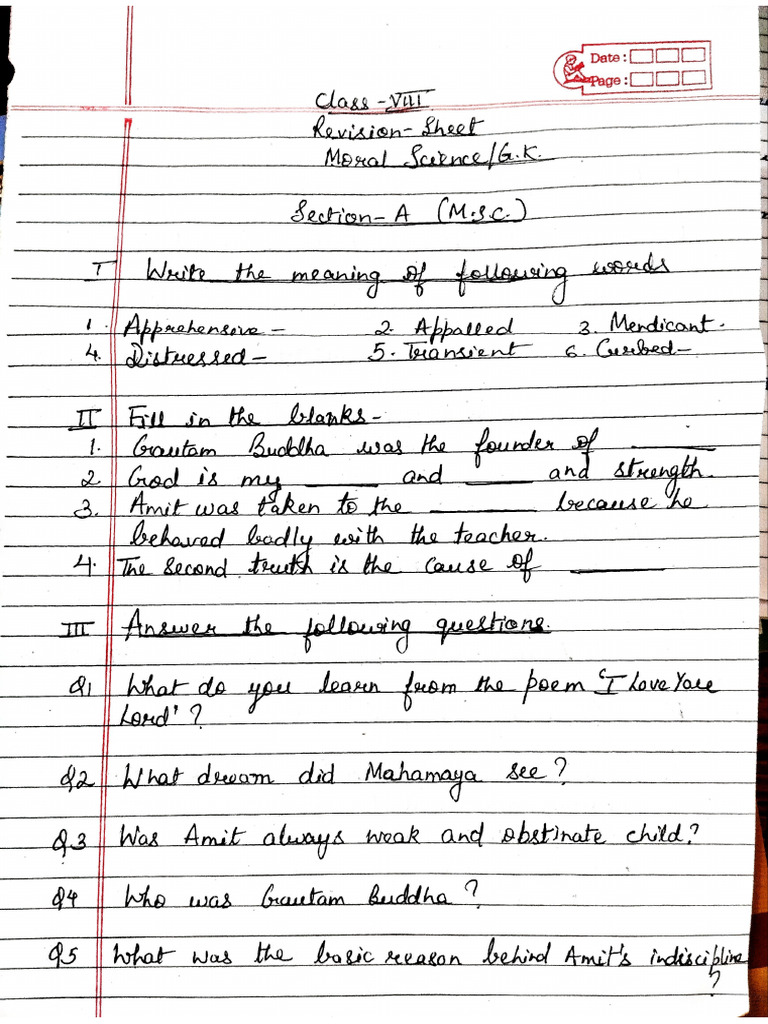 Date:
Page:
Class-VIII
Revision-Sheet
Moral Science/G.K.
Section-A (M.SC.)
I Write the meaning of following words
1. Apprehensive- 2. Appalled 3. Mendicant.
4. Distressed- 5. Transient 6. Curbed-
II Fill in the blanks-
1. Gautam Buddha was the founder of ______
2. God is my ______ and _____ and strength.
3. Amit was taken to the ________ because he
behaved badly with the teacher.
4. The second truth is the cause of ________
III Answer the following questions.
Q1 What do you learn from the poem 'I Love You
Lord'?
Q2 What dream did Mahamaya see?
Q.3 Was Amit always weak and obstinate child?
Q4 Who was Gautam Buddha?
Q5 What was the basic reason behind Amit's indiscipline
?